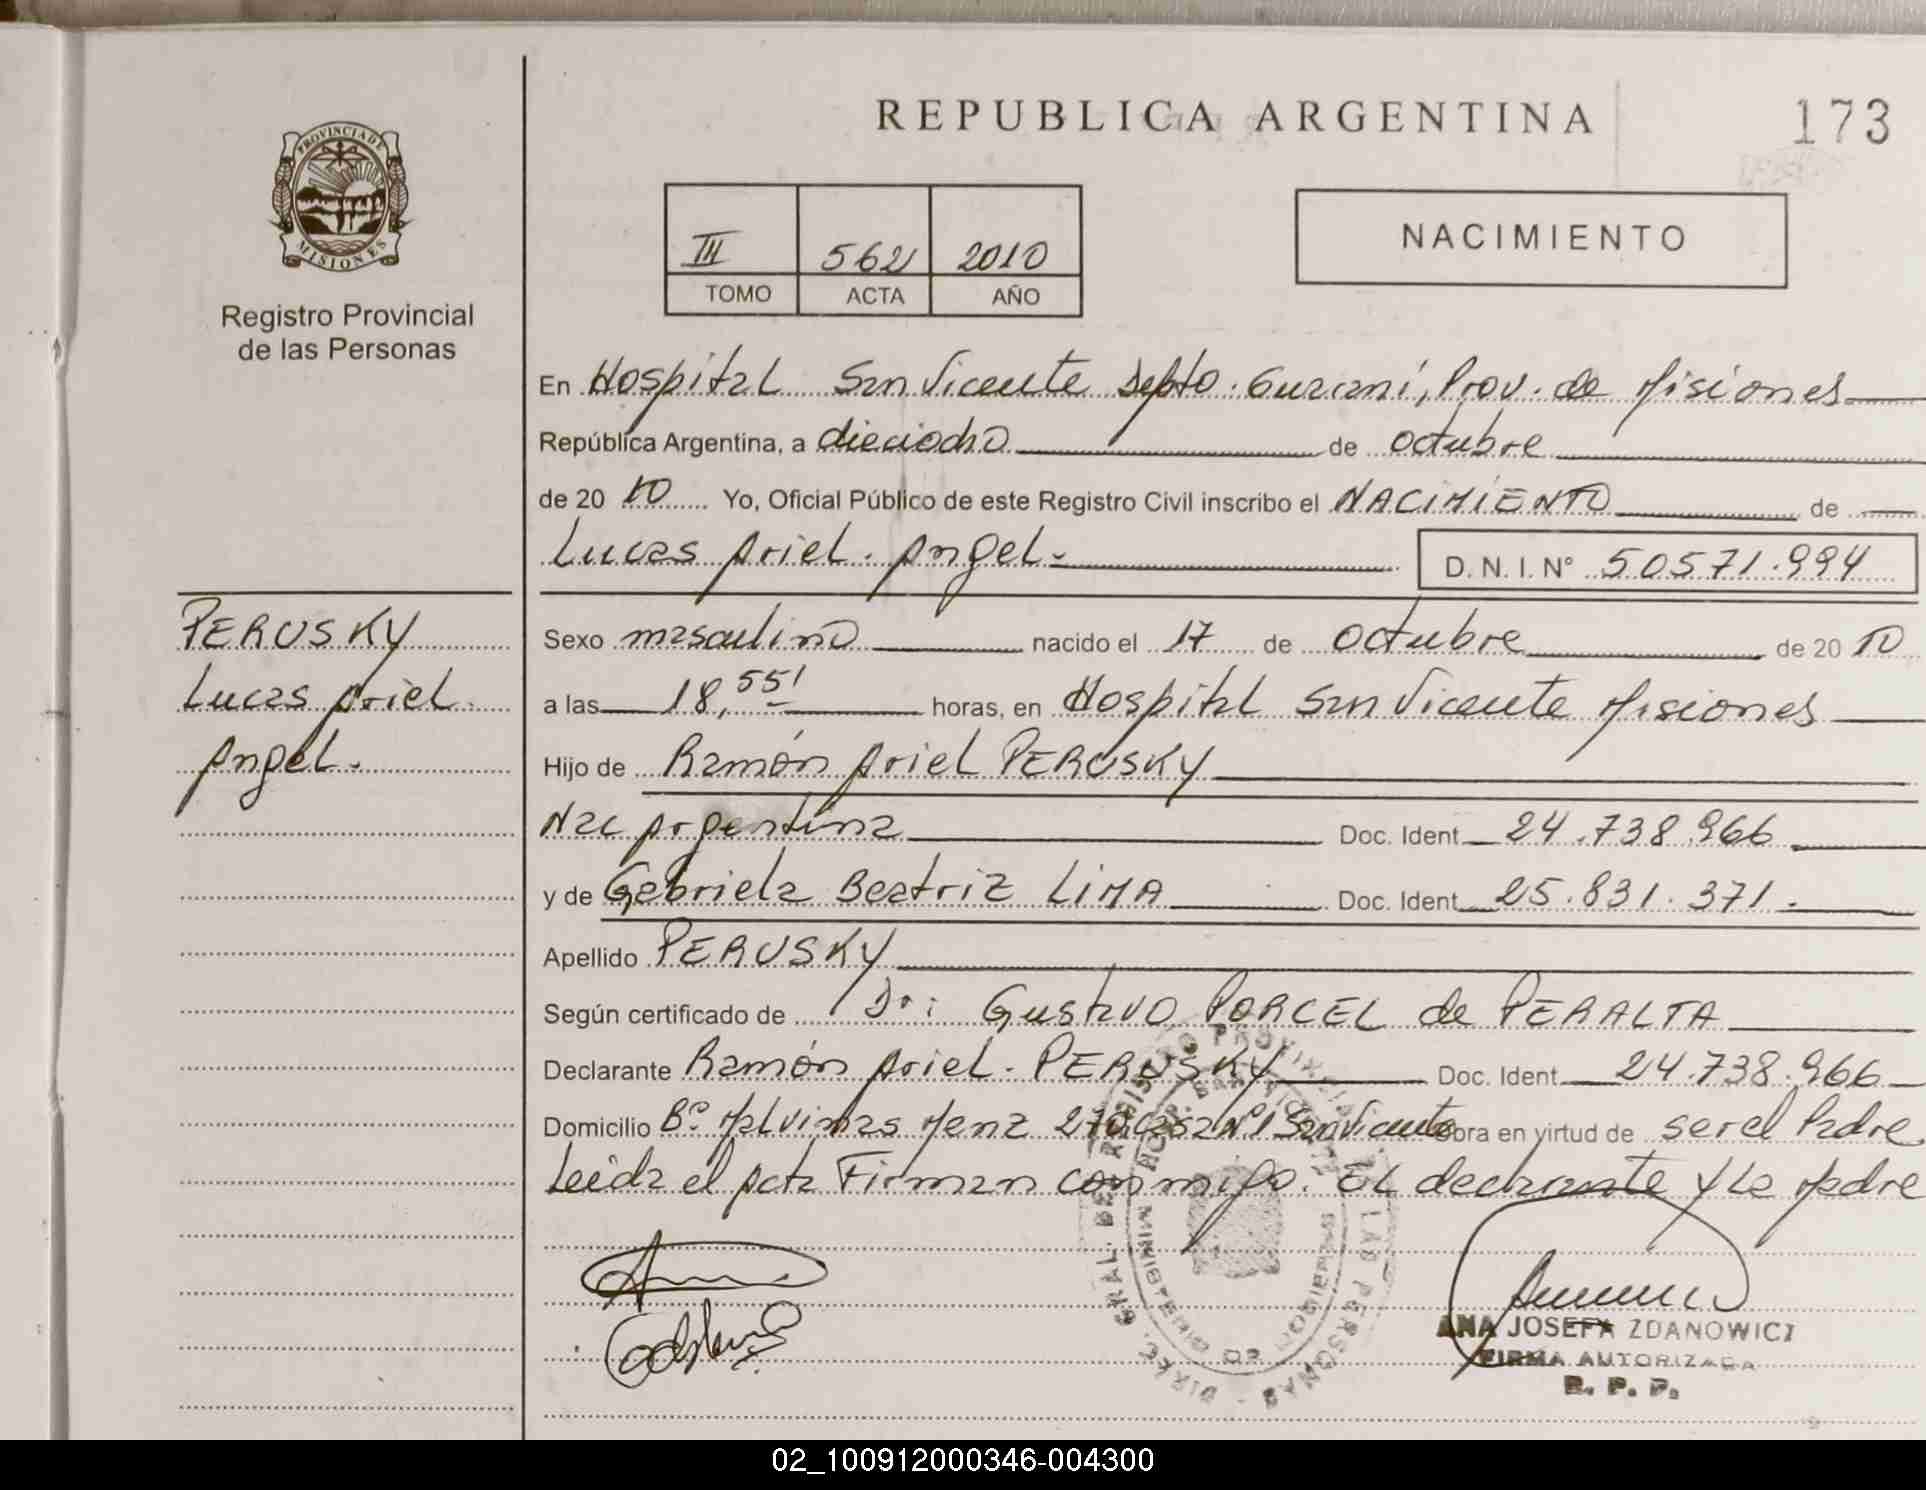 REPUBLICA ARGENTINA
173
PROVINCIA DE
MISIONES
Registro Provincial
de las Personas
III 562 2010
TOMO ACTA AÑO
NACIMIENTO
En Hospital San Vicente Depto. Guaraní, Prov. de Misiones
República Argentina, a dieciocho de octubre
de 2010 Yo, Oficial Público de este Registro Civil inscribo el NACIMIENTO de
Lucas Ariel. Angel.-
D. N. I. N° 50571.994
PERUSKY
Lucas Ariel
Angel.
Sexo masculino nacido el 17 de octubre de 2010
a las 18,55' horas, en Hospital San Vicente Misiones
Hijo de Ramón Ariel PERUSKY
Nac Argentina Doc. Ident 24.738.966
y de Gabriela Beatriz LIMA Doc. Ident 25.831.371.-
Apellido PERUSKY
Según certificado de Dr: Gustavo PORCEL de PERALTA
Declarante Ramón Ariel. PERUSKY Doc. Ident 24.738.966
Domicilio B° Malvinas Menz 270 Casa N°1 San Vicente obra en virtud de ser el Padre
Leida el Acta Firman conmigo. El declarante y La Madre
DIREC. GRAL. DEL REGISTRO PROVINCIAL DE LAS PERSONAS
ANA JOSEFA ZDANOWICZ
FIRMA AUTORIZADA
R. P. P.
02_100912000346-004300